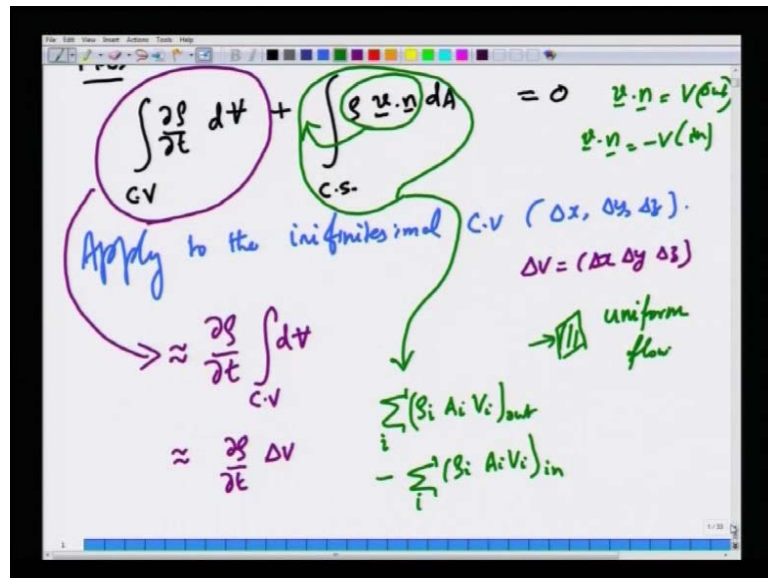 File Edit View Insert Actions Tools Help
∫ ∂ρ/∂t dV + ∫ ρ v.n dA = 0 v.n = V(out)
C.V C.S. v.n = -V(in)
Apply to the inifinitesimal C.V (Δx, Δy, Δz).
ΔV = (Δx Δy Δz)
≈ ∂ρ/∂t ∫ dV → uniform
C.V flow
≈ ∂ρ/∂t ΔV
∑ (ρi Ai Vi)out
i
- ∑ (ρi AiVi)in
i
1/33
1